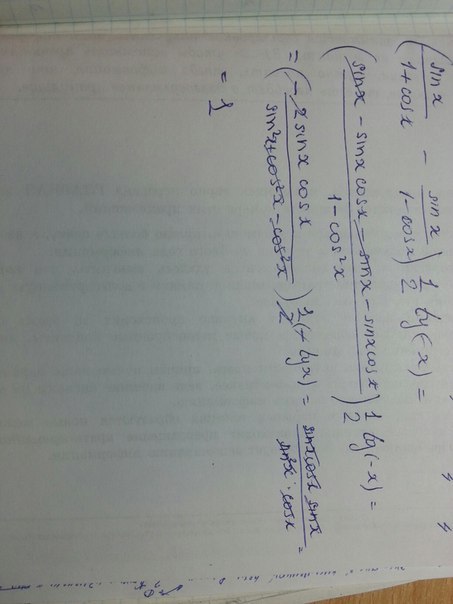 (sinx/1+cosx - sinx/1-cosx) 1/2 tg(-x) =
(sinx - sinx cosx - sinx - sinxcosx/1-cos²x) 1/2 tg(-x) =
= (-2sinx cosx/sin²x+cos²x-cos²x) 1/2 (-tgx) = sinxcosx sinx/sin²x · cosx =
= 1